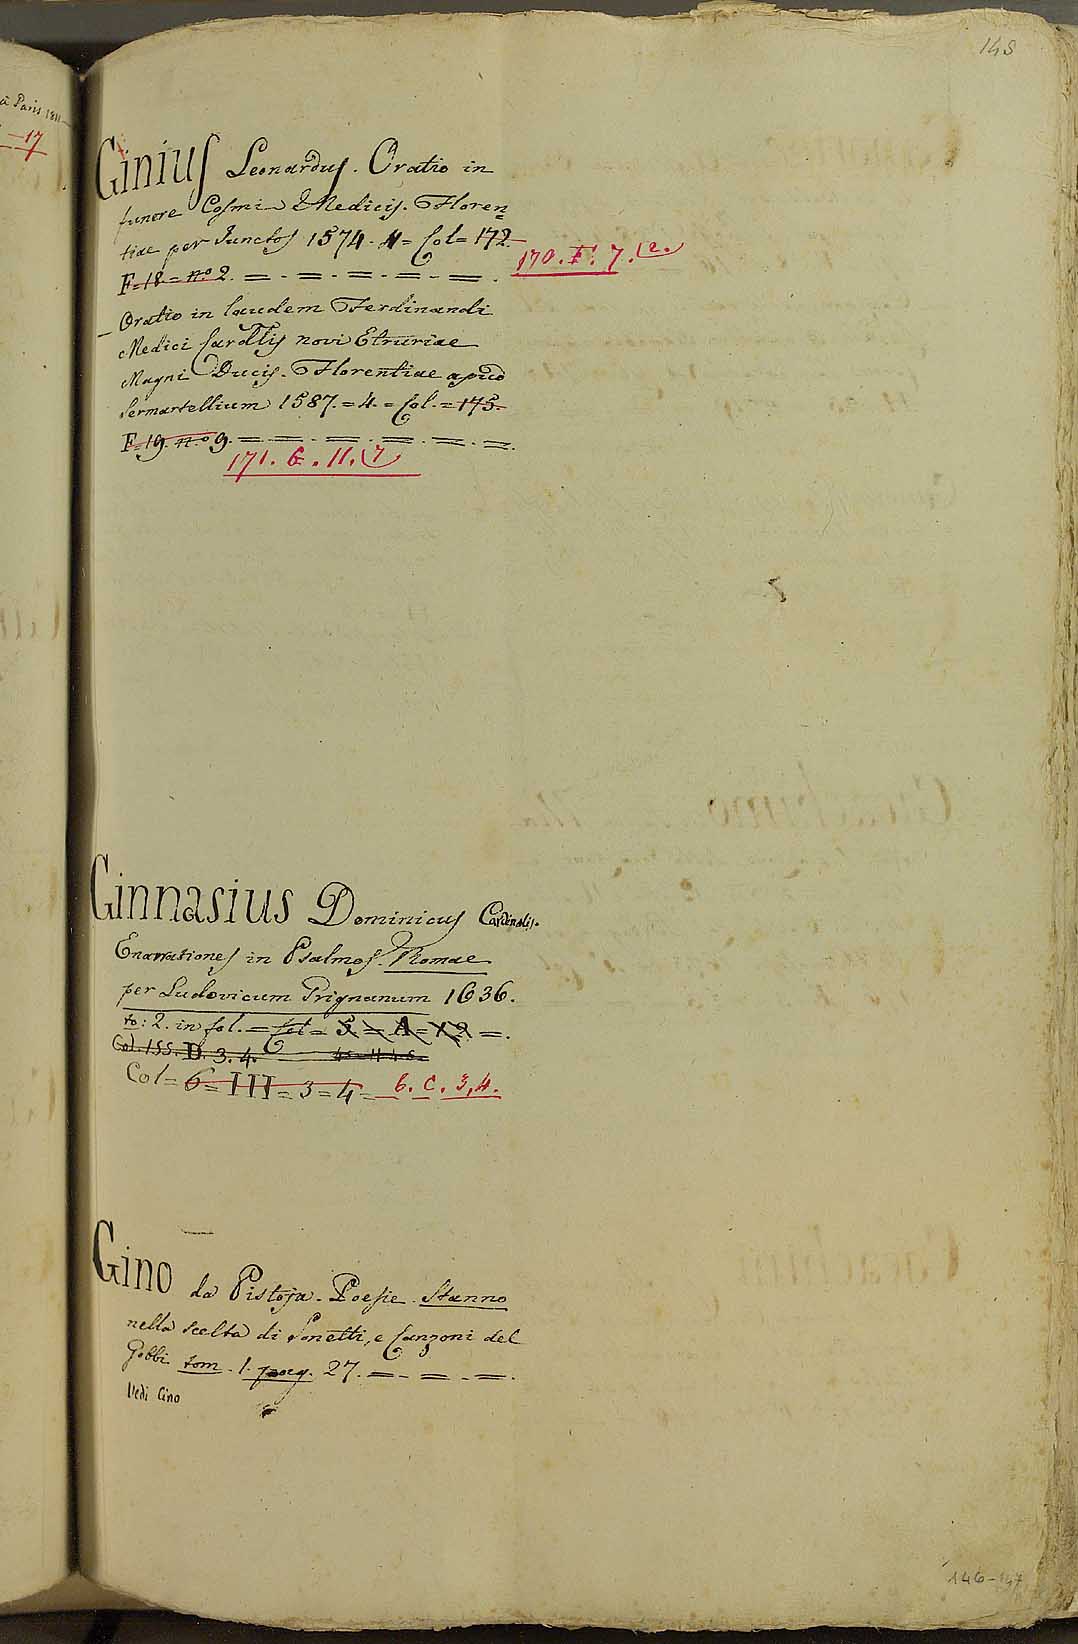 145
à Paris 1811
-17
Ginius Leonardus. Oratio in
funere Cosmi Medicis. Floren=
tiae per Junctos 1574. 4= Col= 172
170. F. 7. (2.)
F=18= n.o 2. = . = . = . = . = .
- Oratio in laudem Ferdinandi
Medici Cardlis novi Etruriae
Magni Ducis. Florentiae apud
Sermartellium 1587. = 4. = Col. = 175.
F=19. n.o 9. = . = . = . = . = . = .
171. G. 11. (7
Ginnasius Dominicus Cardinalis.
Enarrationes in Psalmos. Romae
per Ludovicum Grignanum 1636.
to: 2. in fol. = Col = 5. = A = 12 = .
Col. 155. D. 3. 4.
Col = 6 = III = 3 = 4 = 6. C. 3, 4.
Gino da Pistoja. Poesie. Stanno
nella scelta di Sonetti, e Canzoni del
Gobbi. tom. 1. pag. 27. = . = . = .
Vedi Cino
146-147